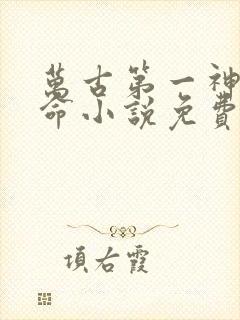 萬古第一神
命小說免費
項右霞